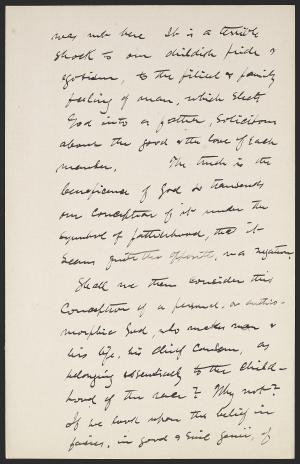 was not here It is a terrible
shock to our childish pride &
egotism, to the filial & family
feeling of man, which elects
God into a father, solicitous
about the good & the love of each
member. The truth is the
beneficence of God so transcends
our conception of it under the
symbol of fatherhood, that it
seems quite the opposite, or a negation.
Shall we then consider this
conception of a personal, or anthro-
morphic God, who makes man &
his life, his chief concern, as
belonging essentially to the child-
hood of the race? Why not?
If we look upon the belief in
fairies, in good & evil genii, of